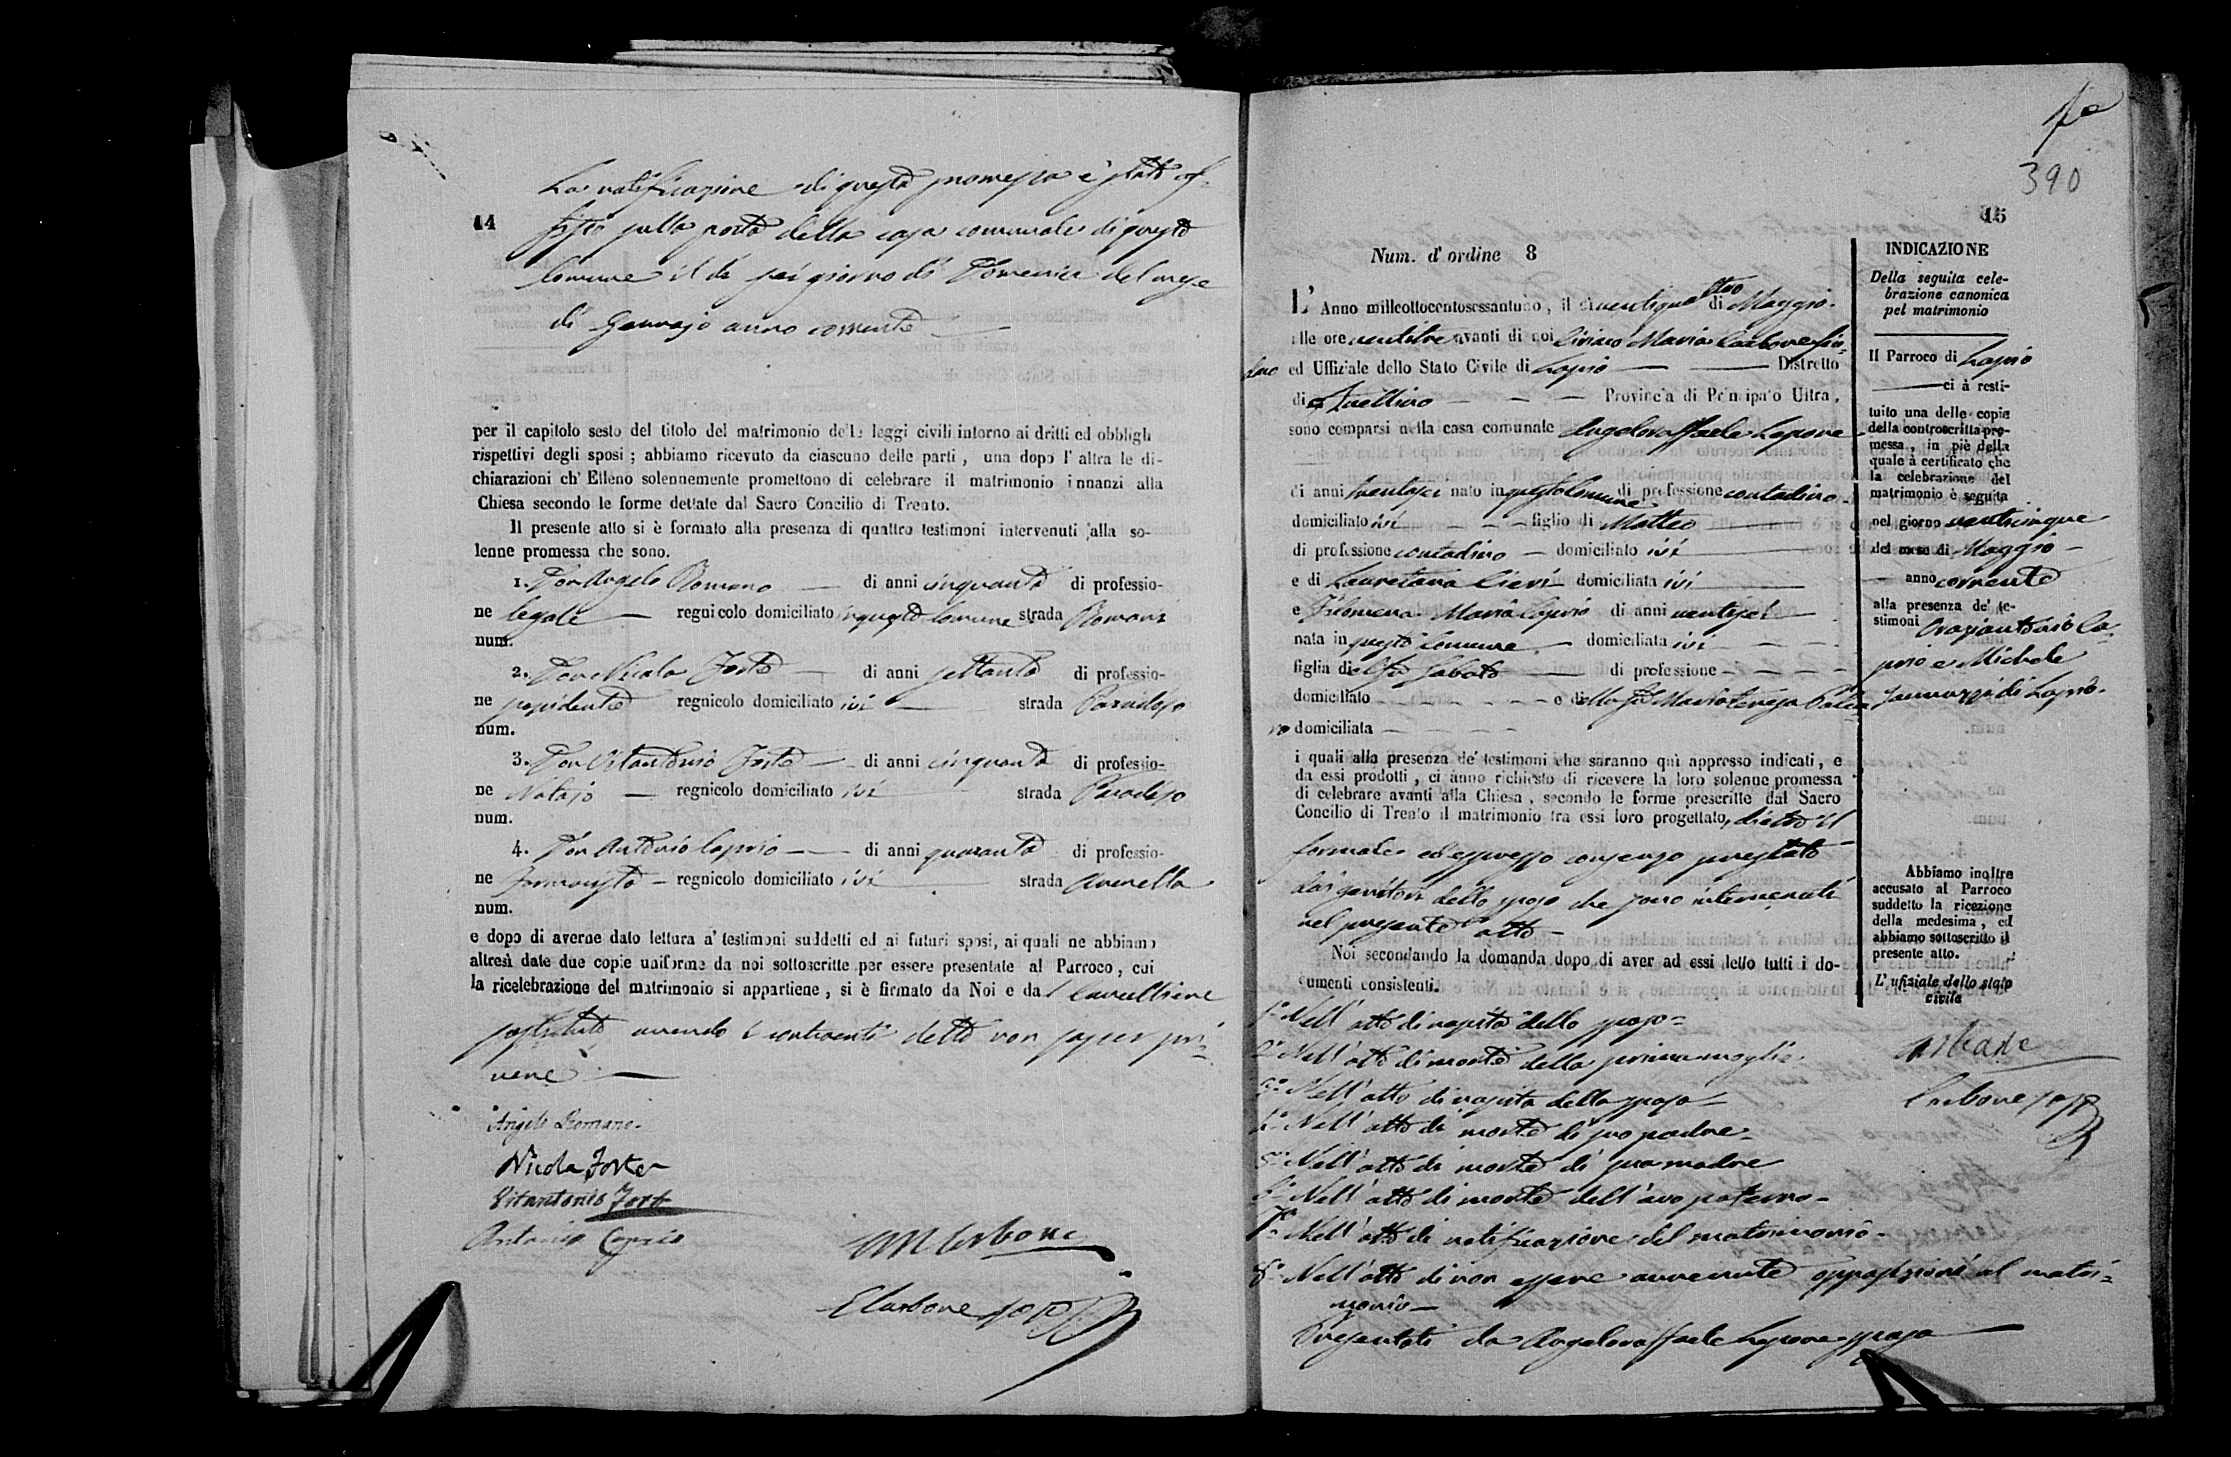 La notificazione di questa promessa è stata af-
fissa sulla porta della casa comunale di questo
Comune il dì sei giorno di Domenica del mese
di Gennajo anno corrente
14
per il capitolo sesto del titolo del matrimonio delle leggi civili intorno ai dritti ed obblighi
rispettivi degli sposi ; abbiamo ricevuto da ciascuno delle parti , una dopo l' altra le di-
chiarazioni ch' Elleno solennemente promettono di celebrare il matrimonio innanzi alla
Chiesa secondo le forme dettate dal Sacro Concilio di Trento.
Il presente atto si è formato alla presenza di quattro testimoni intervenuti alla so-
lenne promessa che sono.
1. Don Angelo Romano di anni cinquanta di professio-
ne legale regnicolo domiciliato in questo Comune strada Romani
num.
2. Don Nicola Forte di anni settanta di professio-
ne possidente regnicolo domiciliato ivi strada Paradiso
num.
3. Don Vitantonio Forte di anni cinquanta di professio-
ne Notajo regnicolo domiciliato ivi strada Paradiso
num.
4. Don Antonio Caprio di anni quaranta di professio-
ne Farmacista regnicolo domiciliato ivi strada Avenella
num.
e dopo di averne dato lettura a' testimoni suddetti ed ai futuri sposi, ai quali ne abbiamo
altresì date due copie uniforme da noi sottoscritte per essere presentate al Parroco , cui
la ricelebrazione del matrimonio si appartiene , si è firmato da Noi e dal Cancelliere
sostituto, avendo i contraenti detto non saper scri-
vere
Angelo Romano
Nicola Forte
Vitantonio Forte
Antonio Caprio
Carbone
Carbone
390
15
Num. d' ordine 8
L' Anno milleottocentosessantuno , il dì ventiquattro di Maggio
alle ore ventitre avanti di noi Ciriaco Maria Carbone Sin-
daco ed Uffiziale dello Stato Civile di Lapio Distretto
di Avellino Provincia di Principato Ultra ,
sono comparsi nella casa comunale Angeloraffaele Lepore
di anni trentasei nato in questo Comune di professione contadino
domiciliato ivi figlio di Matteo
di professione contadino domiciliato ivi
e di Lauretana Cieri domiciliata ivi
e Filomena Maria Caprio di anni ventisei
nata in questo Comune domiciliata ivi
figlia del fu Sabato di professione
domiciliato e della fu Maria Teresa
domiciliata
i quali alla presenza de' testimoni che saranno quì appresso indicati , e
da essi prodotti , ci ànno richiesto di ricevere la loro solenne promessa
di celebrare avanti alla Chiesa , secondo le forme prescritte dal Sacro
Concilio di Trento il matrimonio tra essi loro progettato, dietro il
formale ed espresso consenso prestato
dai genitori dello sposo che sono intervenuti
nel presente atto
Noi secondando la domanda dopo di aver ad essi letto tutti i do-
cumenti consistenti.
1.º Nell' atto di nascita dello sposo
2.º Nell' atto di morte della prima moglie
3.º Nell' atto di nascita della sposa
4.º Nell' atto di morte di suo padre
5.º Nell' atto di morte di sua madre
6.º Nell' atto di morte dell' avo paterno
7.º Nell' atto di notificazione del matrimonio
8.º Nell' atto di non essere avvenute opposizioni al matri-
monio
Presentati da Angeloraffaele Lepore sposo
INDICAZIONE
Della seguita cele-
brazione canonica
pel matrimonio
Il Parroco di Lapio
ci à resti-
tuito una delle copie
della controscritta pro-
messa , in piè della
quale à certificato che
la celebrazione del
matrimonio è seguita
nel giorno venticinque
del mese di Maggio
anno corrente
alla presenza de' te-
stimoni Oraziantonio Ca-
prio e Michele
Jannuzzi di Lapio.
Abbiamo inoltre
accusato al Parroco
suddetto la ricezione
della medesima , ed
abbiamo sottoscritto il
presente atto.
L' ufiziale dello stato
civile
Carbone